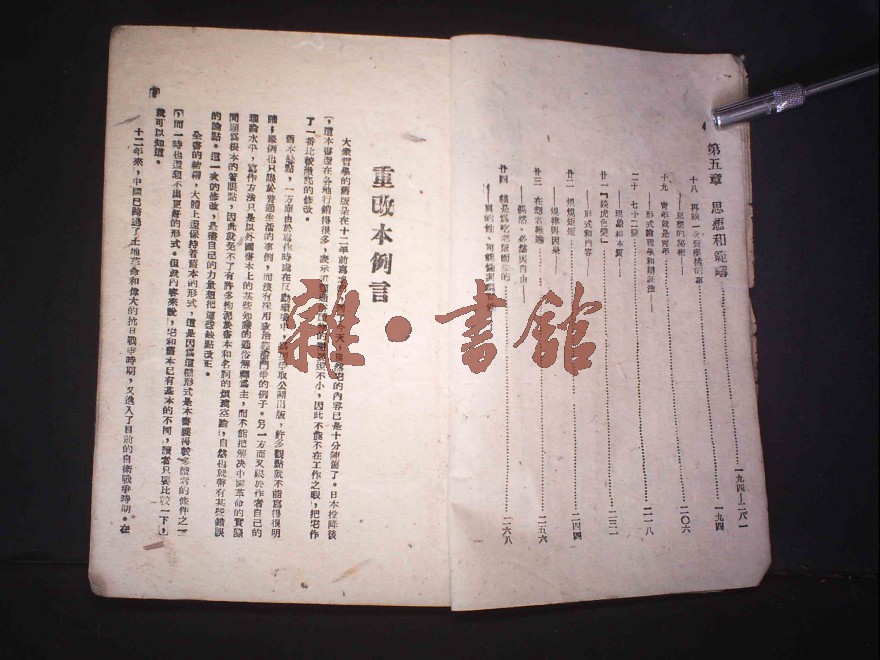 第五章 思想和範疇……一九四—二八一
十八 再談一次……一九四
——思想的秘密——
十九 青年就是青年……二〇六
——形式論理學和辯証法——
二十 七十二變……二一八
——現象和本質——
廿一 「談虎色變」……二三一
——形式和內容——
廿二 規規矩矩……二四四
——規律與因果——
廿三 在劫者難逃……二五六
——偶然、必然與自由——
廿四 貓是為吃老鼠而生的……二六八
——目的性、可能性
重改本例言
大衆哲學的舊版是在十二年前寫 今天, 它的內容已是十分陳舊了。日本投降後
,這本書還在各地行銷得很多,表示 不小,因此不能不在工作之暇,把它作
了一番比較徹底的修改。
舊本缺點,一方面由於寫作時處在反動環境中, 爭取公開出版,許多觀點就不能寫得很明
,舉例也只限於普通生活的事例,而沒有採用政治經濟鬥爭的例子。另一方面又限於作者自己的
理論水平,寫作方法只是以外國書本上的某些知識的通俗解釋為主,而不能把解決中國革命的實際
問題為根本的着眼點,因此就免不了有許多拘泥於書本和名詞的煩瑣空論,自然也就帶有某些錯誤
的論點。這一次的修改,是盡自己的力量想把這些缺點改正。
全書的結構,大體上還保持着舊本的形式,這是因為這種形式是本書獲得較多讀者的條件之一
,而一時也還想不出更好的形式。但就內容來說,它和舊本已有基本的不同,讀者只要比較一下,
就可以知道。
十二年來,中國已踏過了土地革命和偉大的抗日戰爭時期,又進入了目前的自衛戰爭時期。在
雜·書館